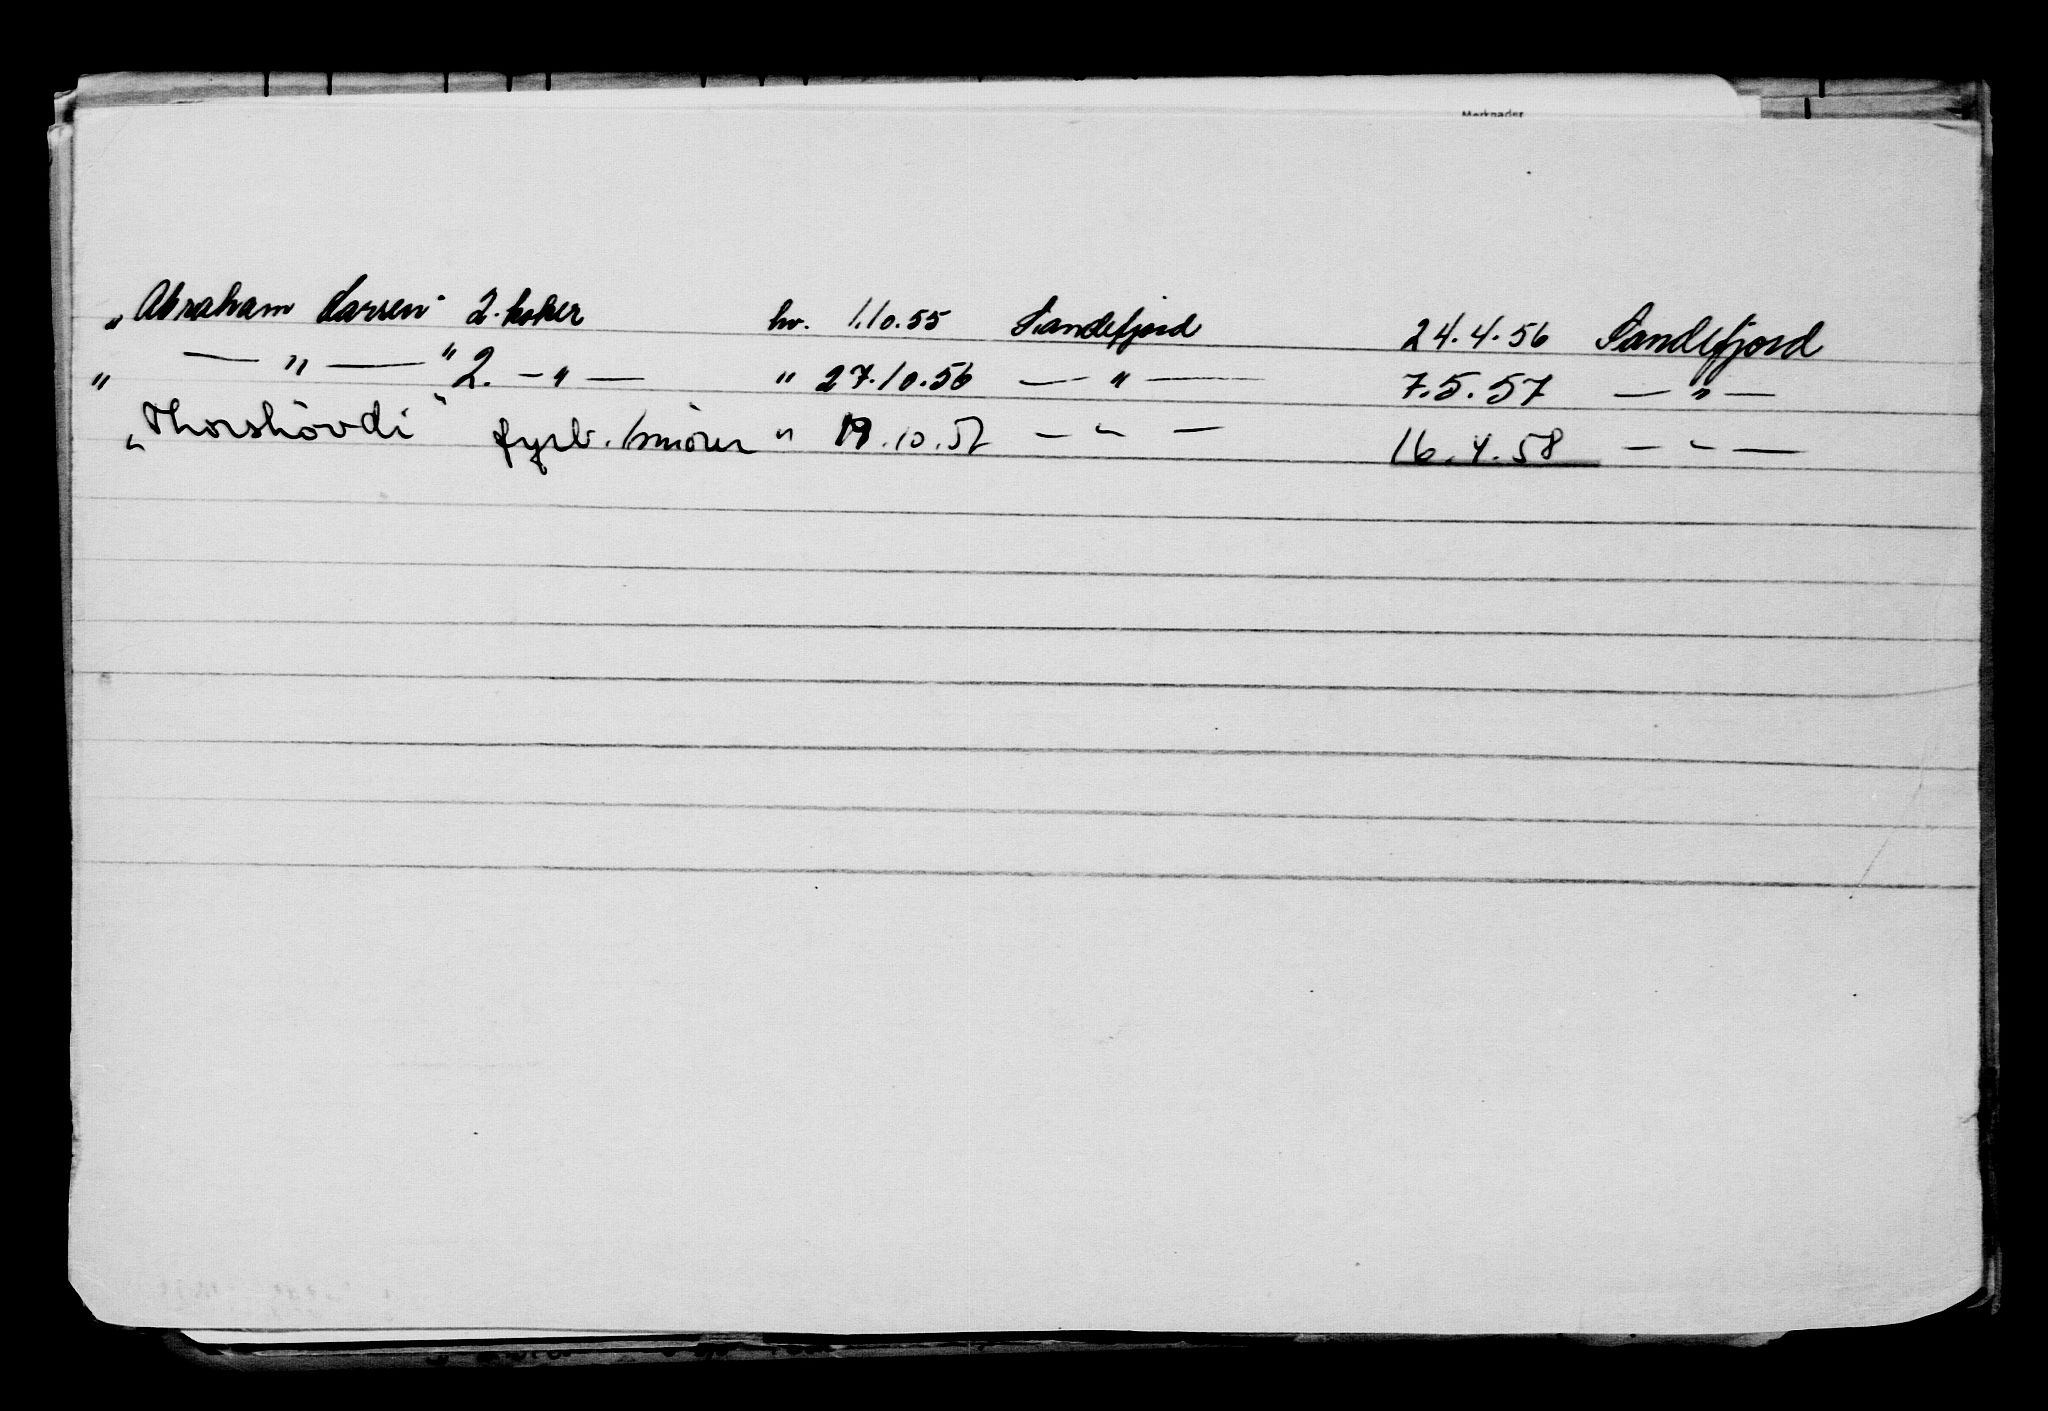 Merknader
„Abraham Larsen" 2. koker hv. 1.10.55 Sandefjord 24.4.56 Sandefjord
„ — " — " 2. — " — " 27.10.56 — " — 7.5.57 — " —
„Thorshövdi" fyrb./smörer " 19.10.57 — " — 16.4.58 — " —